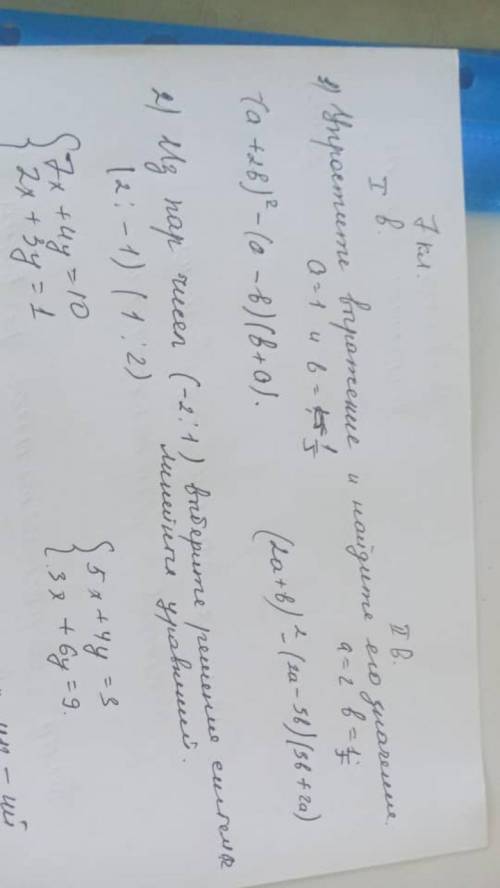 7 кл.
I в.
II в.
1) Упростить выражение и найдите его значение.
a=1 и b=
a=2 b=
(a+2b)² - (a-b)(b+a).
(2a+b)² - (2a-3b)(3b+2a)
2) Из пар чисел (-2;1) выберите решения системы
(2;-1) (1;2) линейных уравнений.
{ 7x + 4y = 10
2x + 3y = 1
{ 5x + 4y = 3
3x + 6y = 9.